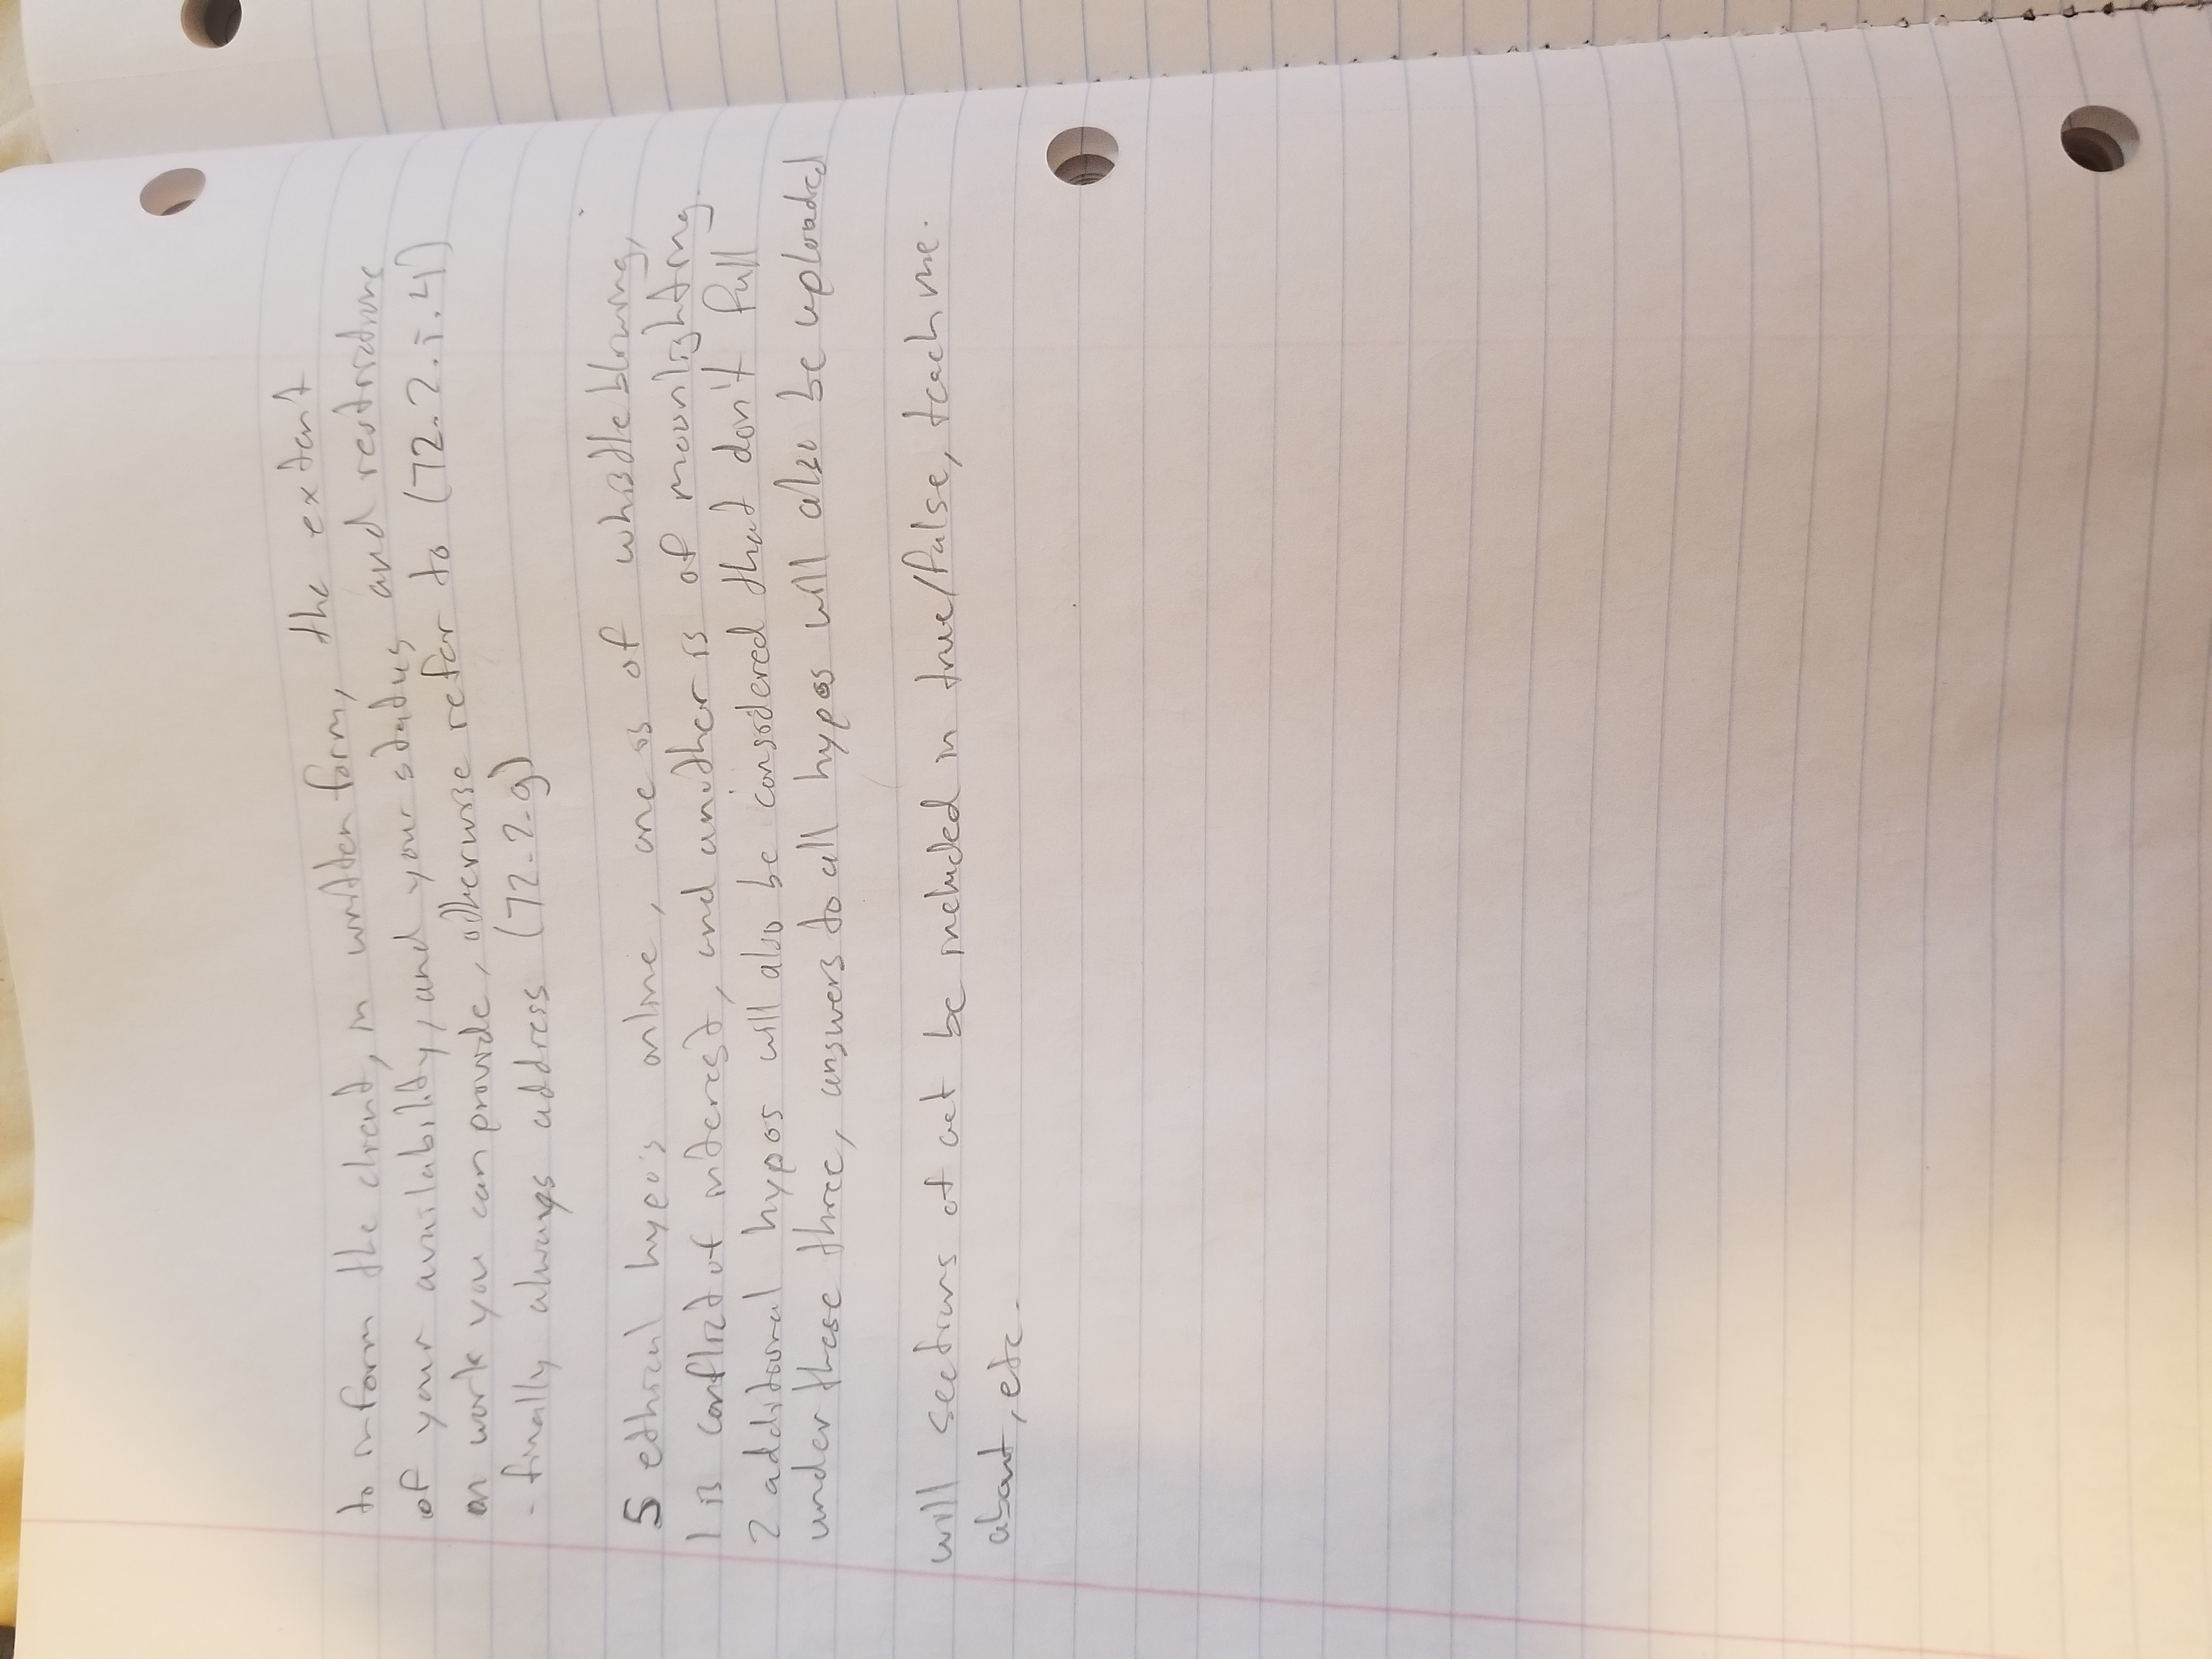 to inform the client, in written form, the extent
of your availability, and your status and restrictions
on work you can provide, otherwise refer to (72.2.i.4)
- finally always address (72.2.g)
5 ethical hypo's online, one is of whistleblowing,
1 is conflict of interest, and another is of moonlighting.
2 additional hypos will also be considered that don't fall
under these three, answers to all hypos will also be uploaded
will sections of act be included in true/false, teach me
about, etc.